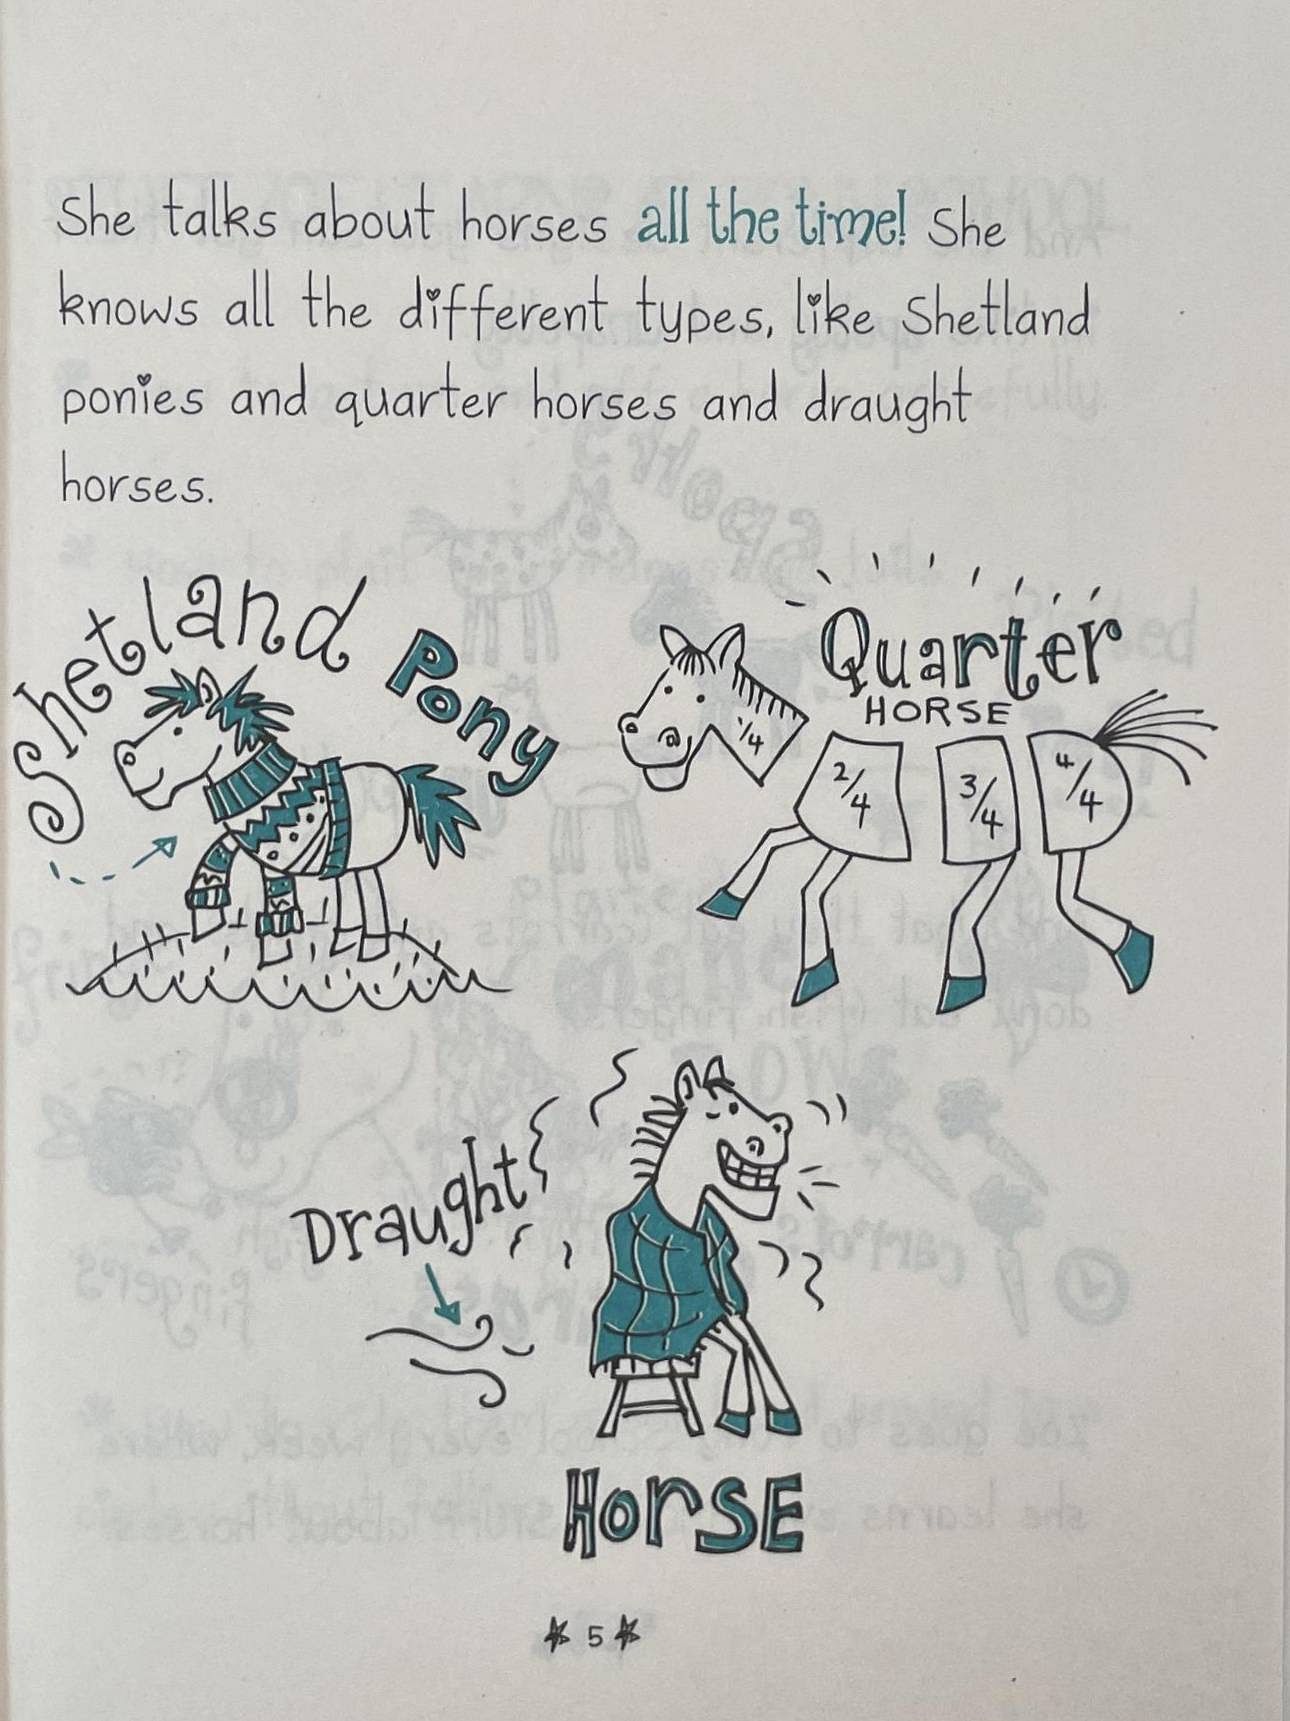 She talks about horses all the time! She
knows all the different types, like Shetland
ponies and quarter horses and draught
horses.
Shetland Pony
Quarter
HORSE
1/4
2/4
3/4
4/4
Draught
HORSE
5